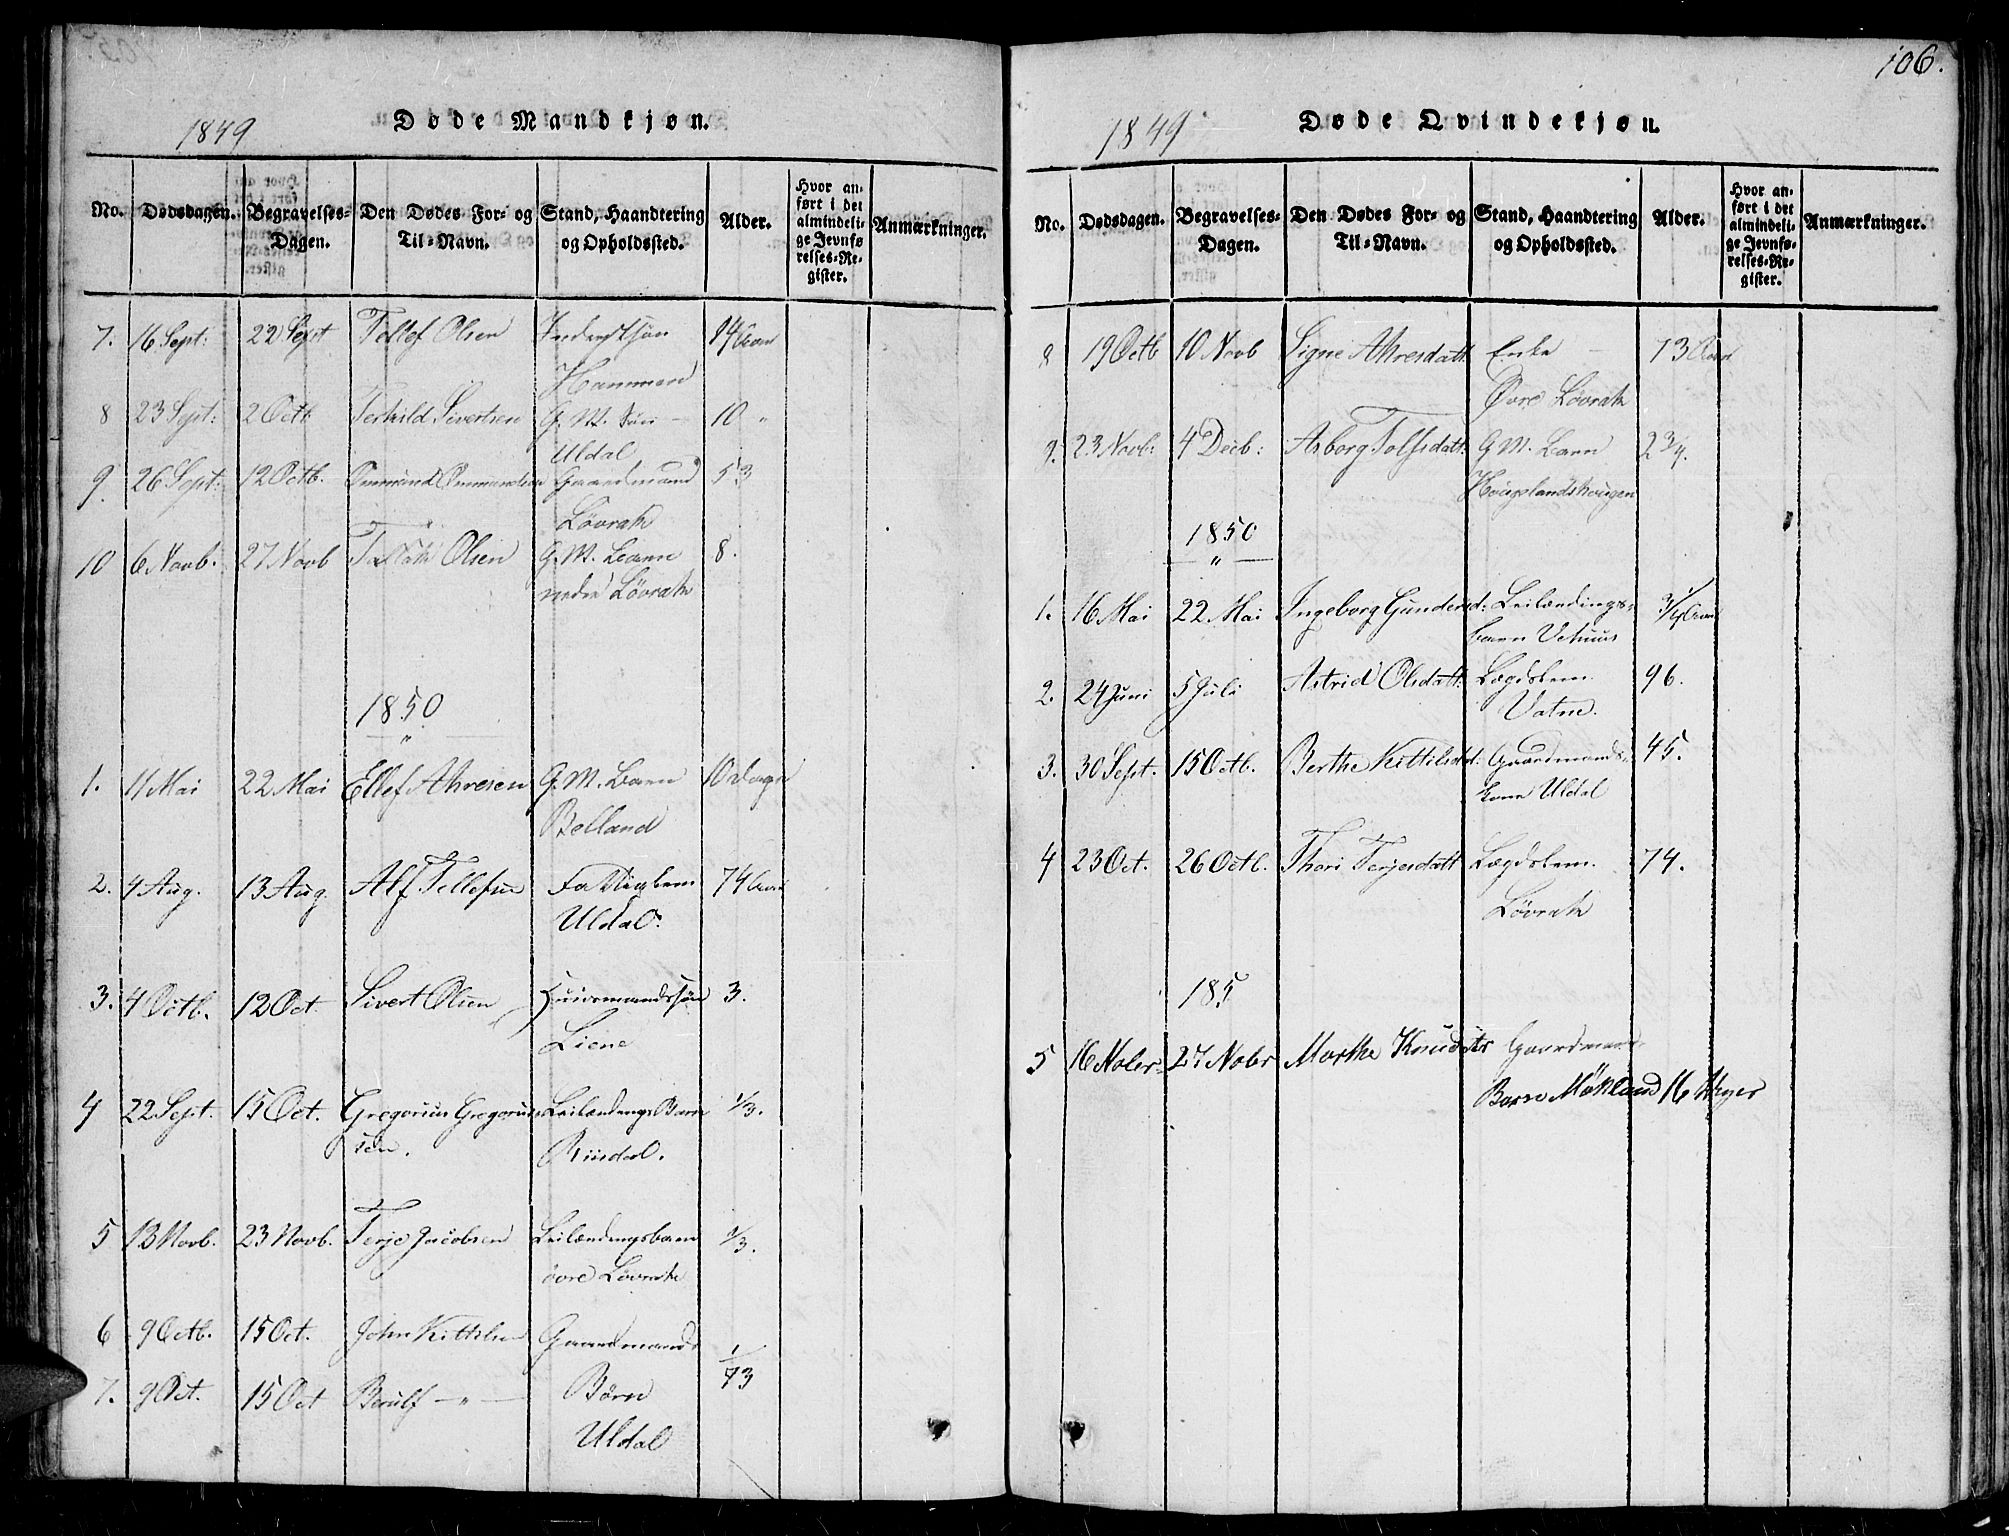 106.
1849
Døde Mandkjøn.
No.
Dødsdagen.
Begravelses-
Dagen.
Den Dødes For- og
Til-Navn.
Stand, Haandtering
og Opholdssted.
Alder.
Hvor an-
ført i det
almindeli-
ge Jevnfø
relses-Re-
gister.
Anmærkninger.
7. 16 Sept: 22 Sept Tellef Olsen 14 Aar
Hammen
8 23 Sept: 2 Octb Terkild Sivertsen G. M. Søn 10 "
Uldal
9. 26 Sept: 12 Octb. Ommund Ommundsen Gaardmand 53
Lövrak
10 6 Novb. 27 Novb Olsen G. M. Barn 8.
nedre Lövrak
1850
1. 11 Mai 22 Mai Ellef Ahresen G. M. Barn 10 Dage
Belland
2. 4 Aug. 13 Aug. Alf Tellefsen Fattiglem 74 Aar
Uldal.
3. 4 Octb. 12 Oct. Sivert Olsen Huusmandssön 3.
Liene
4 22 Sept. 15 Oct. Gregorius Gregorius Leilændings Barn 1/3.
sen. Riisdal.
5 13 Novb. 23 Novb. Terje Jacobsen Leilændingsbarn 1/3.
övre Lövrak
6 9 Octb. 15 Oct. John Kittilsen Gaardmands
7. 9 Oct. 15 Oct Berulf — " — Börn 1/73
Uldal
1849
Døde Qvindekjøn.
No.
Dødsdagen.
Begravelses-
Dagen.
Den Dødes For- og
Til-Navn.
Stand, Haandtering
og Opholdssted.
Alder.
Hvor an-
ført i det
almindeli-
ge Jevnfø-
relses-Re-
gister.
Anmærkninger.
8 19 Octb 10 Novb Signe Ahresdatt: Enke 73 Aar
Övre Lövrak
9. 23 Novb: 4 Decb: Asborg Tolfsdatt: G. M. Barn 2 3/4.
Hougelandskougen
1850
"
1. 16 Mai 22 Mai Ingeborg Gundersd: Leilændings- 3/4 Aar
barn Vehuus
2. 24 Juni 5 Juli Astrid Olsdatt: Lægdslem 96.
Vatne.
3. 30 Sept. 15 Octb. Berthe Kittilsd: Gaardmands- 45.
kone Uldal
4 23 Oct. 26 Octb. Thori Terjesdatt Lægdslem. 74.
Lövrak
185
5 16 Nobr. 27 Nobr Marthe Knudstr Gaardmand-
Barn Mökland 16 Uger